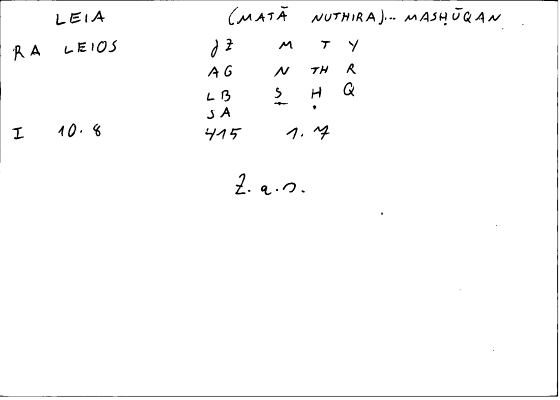 LEIA (MATĀ NUTHIRA)... MASḤŪQAN
RA LEIOS JZ M T Y
AG N TH R
LB S̱ Ḥ Q
SA
I 10.8 415 1.7
Z.a.n.